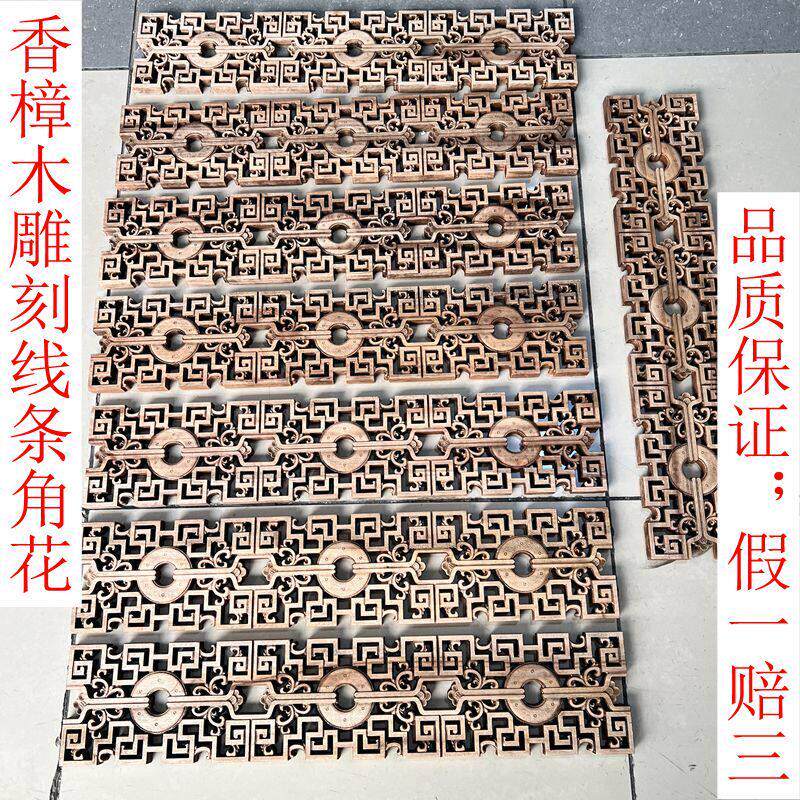 香樟木雕刻线条角花
品质保证；假一赔三